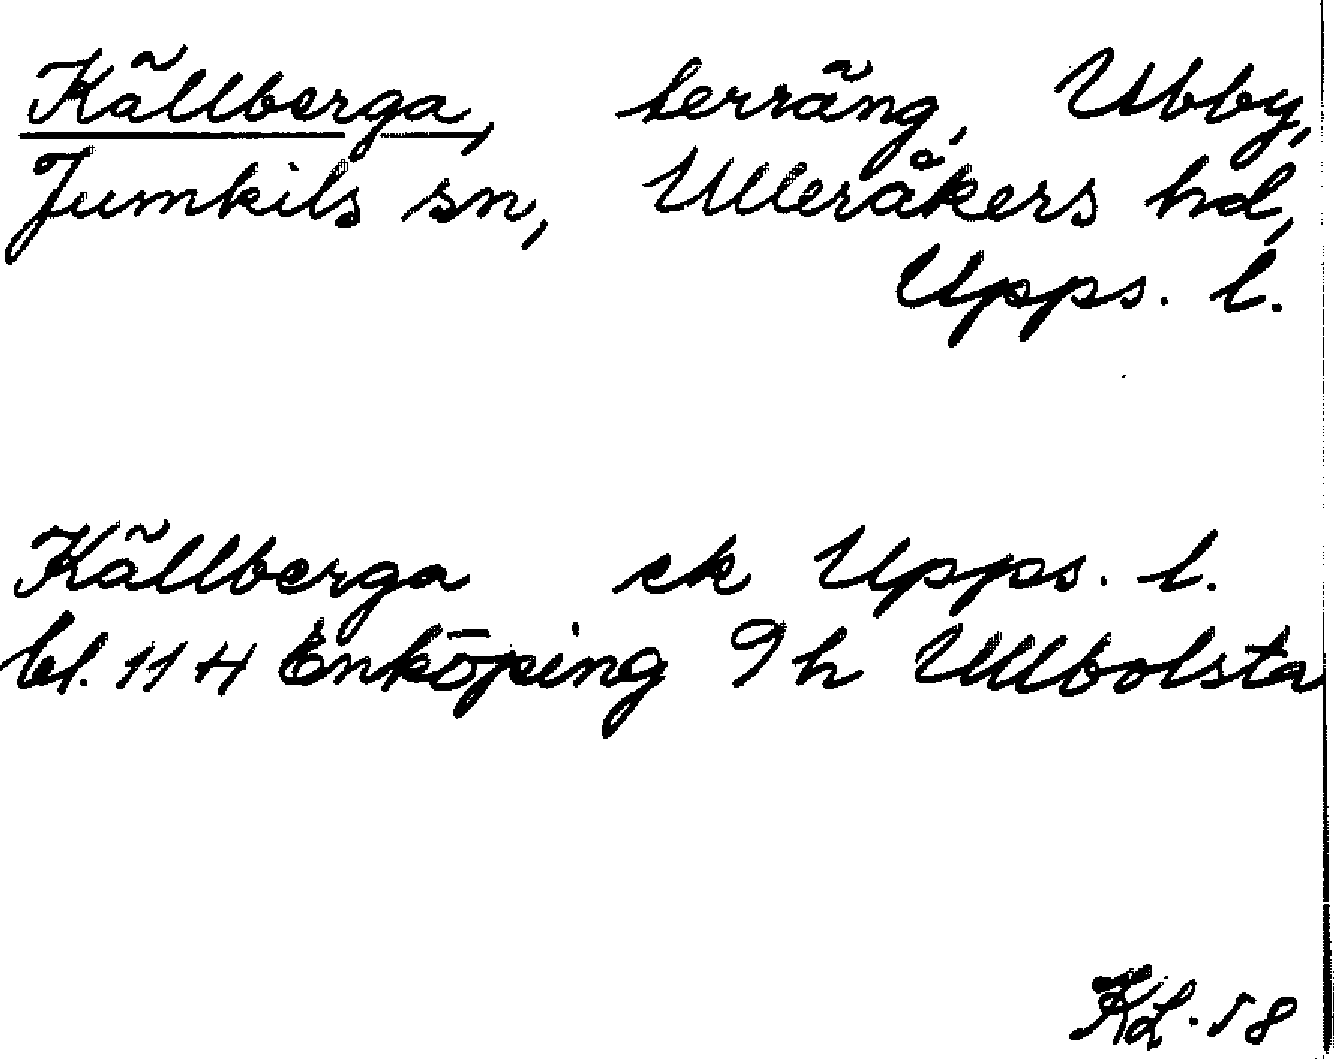 Källberga, terräng, Ubby,
Jumkils sn, Ulleråkers hd,
Upps. l.
Källberga ek Upps. l.
bl. 114 Enköping 9h Ullbolsta
KL. 58